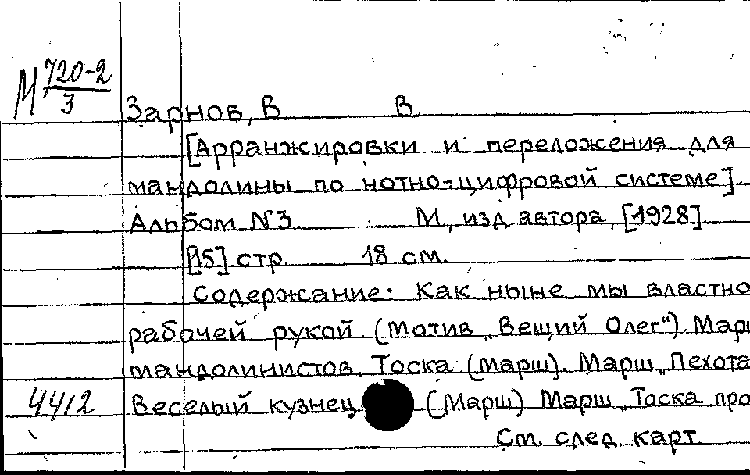 М 720-2
3
Зарнов, В В
[Арранжировки и переложения для
мандолины по нотно-цифровой системе]
Альбом №3 М, изд автора, [1928]
[15] стр. 18 см.
Содержание: Как ныне мы властно
рабочей рукой (мотив „Вещий Олег"). Марш
мандолинистов. Тоска (Марш). Марш „Пехота
4412 Веселый кузнец (Марш) Марш „Тоска про
См. след. карт.